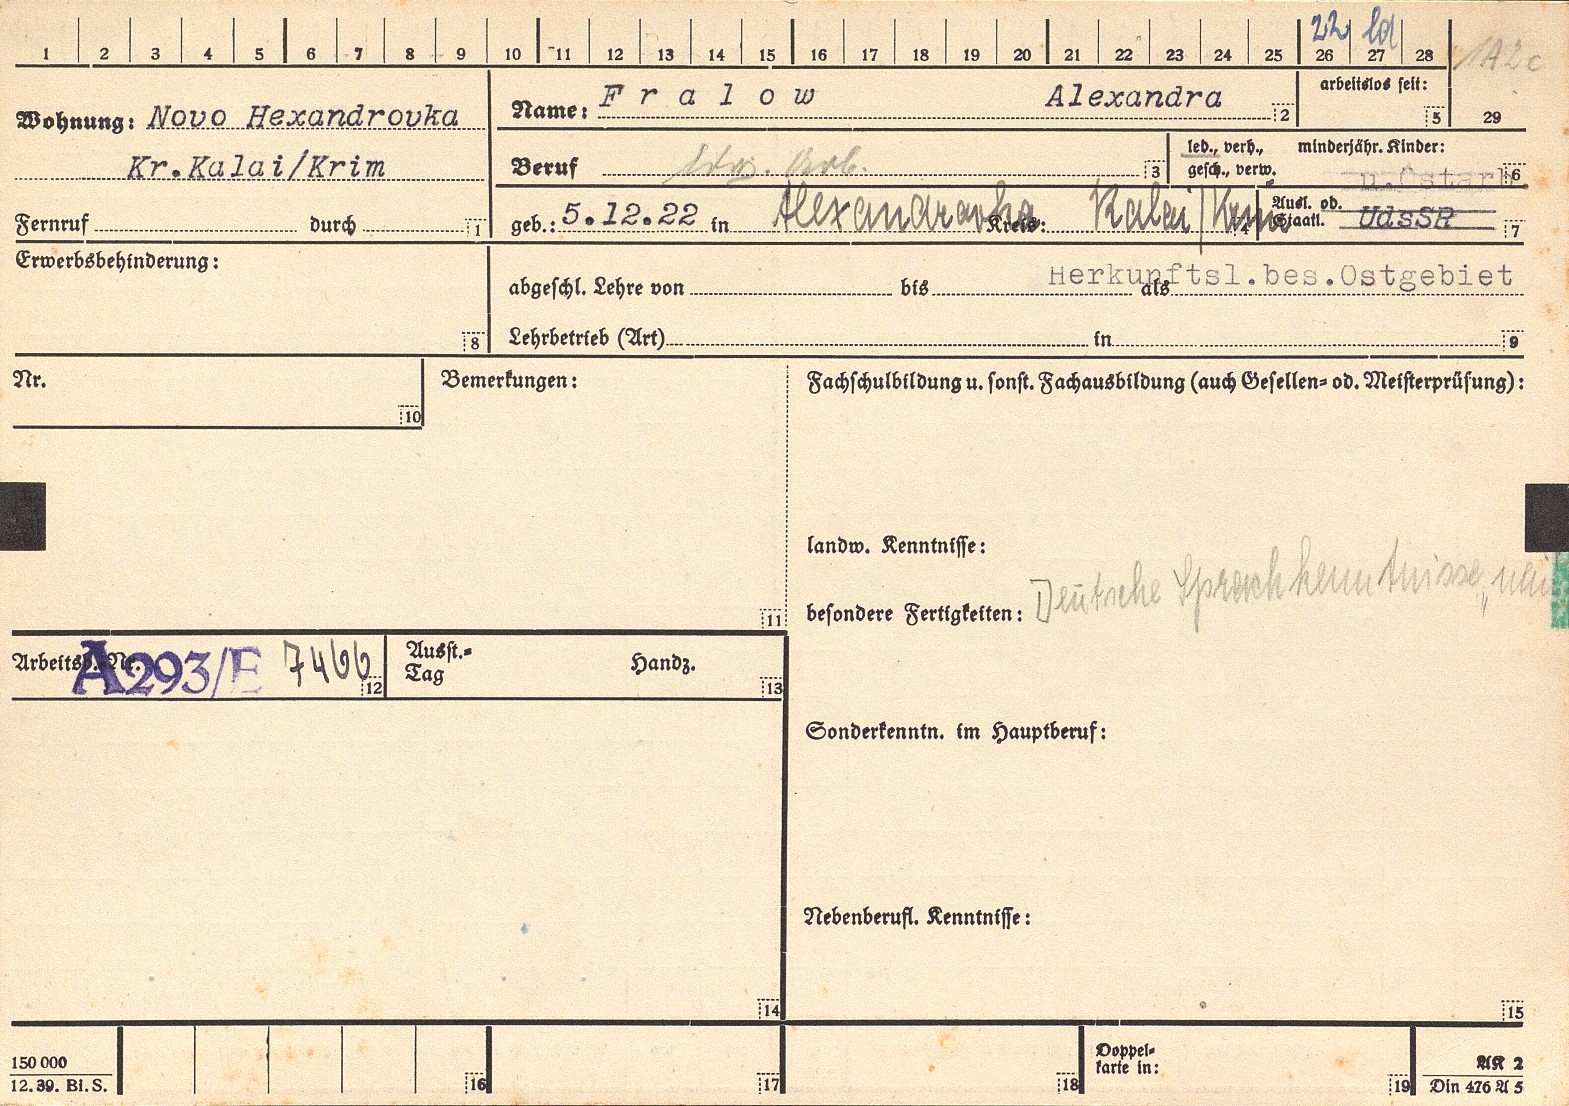 22 ld
1 2 3 4 5 6 7 8 9 10 11 12 13 14 15 16 17 18 19 20 21 22 23 24 25 26 27 28 1A2c
Wohnung: Novo Hexandrovka
Kr.Kalai/Krim
Name: Fralow Alexandra 2
arbeitslos seit: 5
29
Beruf Ldw. Arb. 3
led., verh., gesch., verw.
minderjähr. Kinder: 6
Fernruf durch 1
geb.: 5.12.22 in Alexandrovka Kreis: Kalai/Krim 4
Ausl. od. Staatl. UdsSR 7
u.Ostarb
Erwerbsbehinderung: 8
Herkunftsl.bes.Ostgebiet
abgeschl. Lehre von bis als
Lehrbetrieb (Art) in 9
Nr. 10
Bemerkungen: 11
Fachschulbildung u. sonst. Fachausbildung (auch Gesellen- od. Meisterprüfung):
landw. Kenntnisse:
besondere Fertigkeiten: Deutsche Sprachkenntnisse
Arbeitsb.-Nr. A293/E 7466 12
Ausst.-Tag Handz. 13
Sonderkenntn. im Hauptberuf:
Nebenberufl. Kenntnisse:
14 15
150 000
12. 39. Bi. S.
16 17 18
Doppelkarte in: 19
AK 2
Din 476 A 5